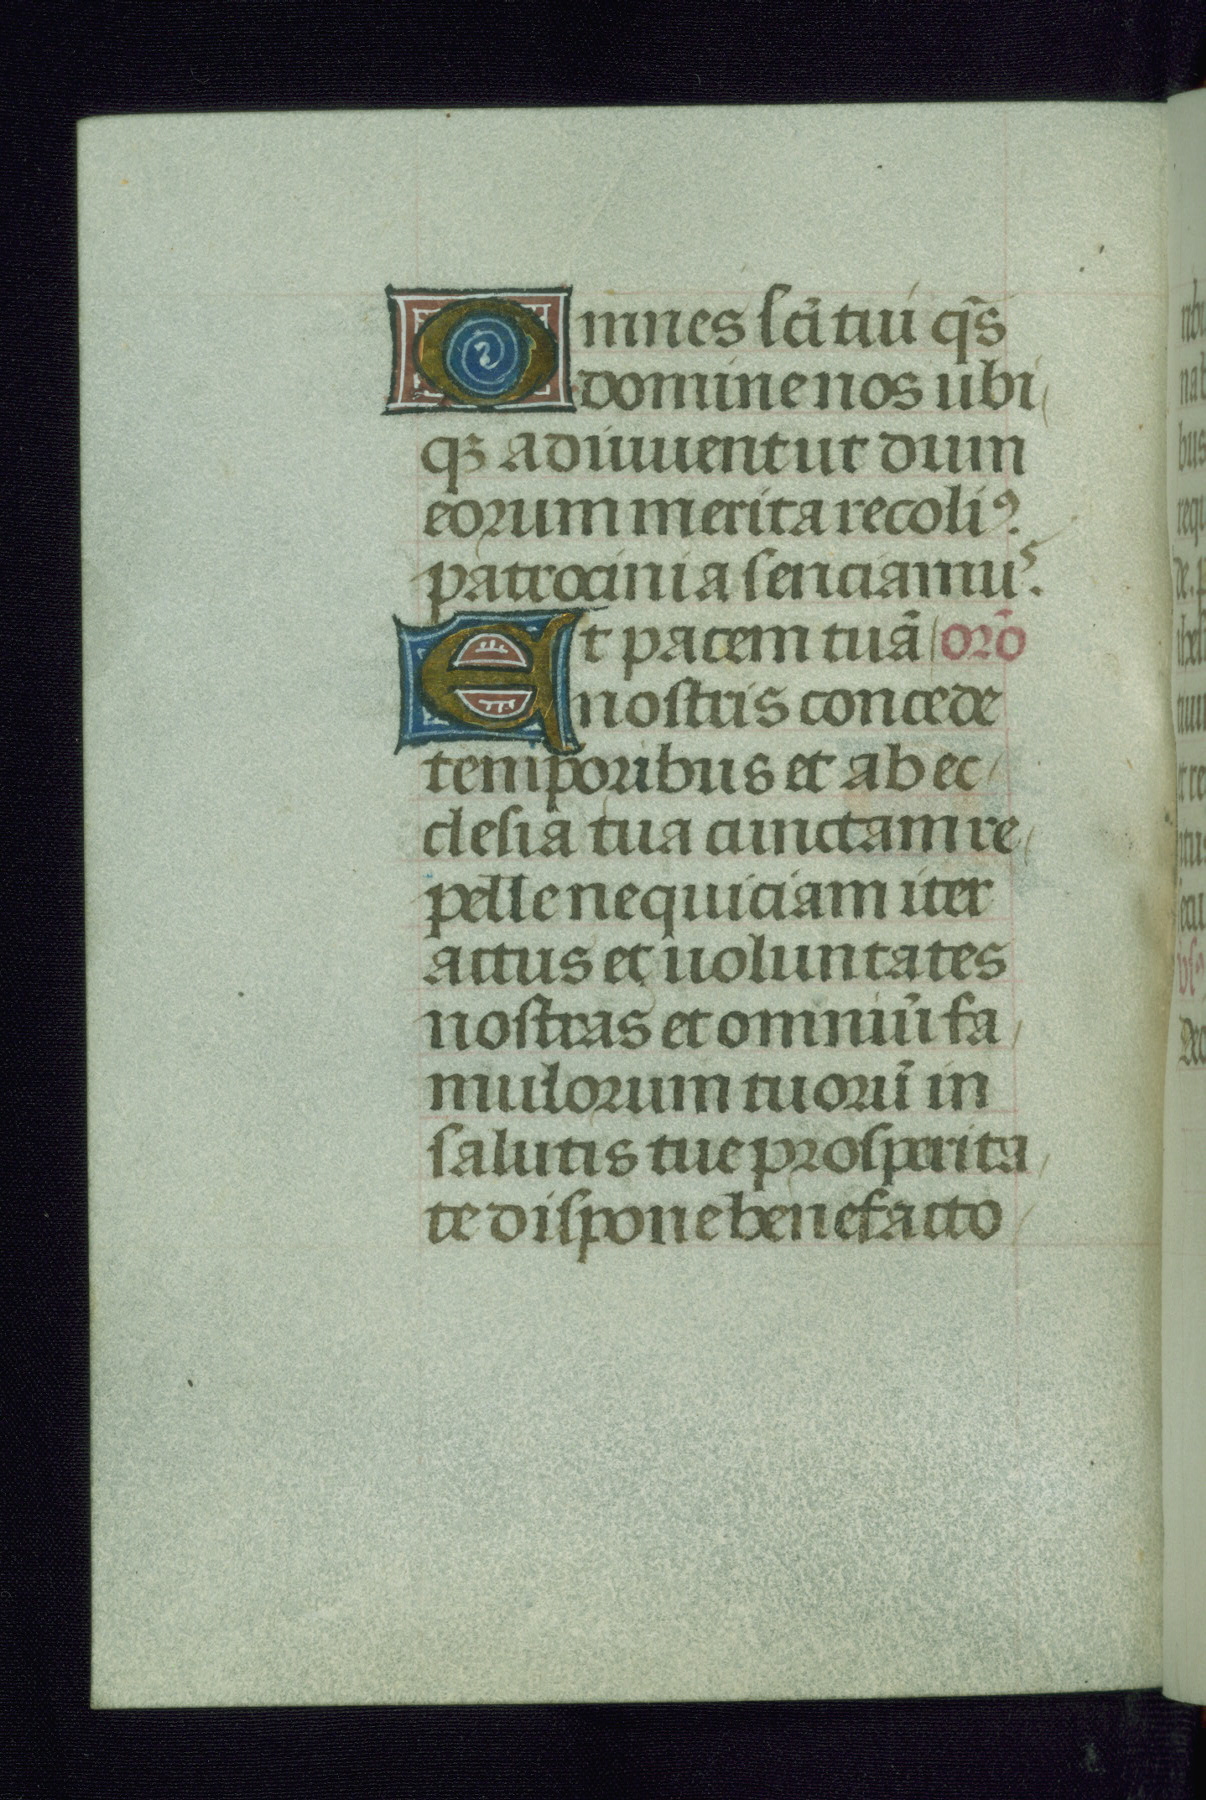 Omnes sc̄i tui q̄s
domine nos ubi
qꝫ adiuuent ut dum
eorum merita recoliꝰ
patrocinia senciamus.
Et pacem tuā or̄o
nostris concede
temporibus et ab ec
clesia tua cunctam re
pelle nequiciam iter
actus et uoluntates
nostras et omniū fa
mulorum tuorū in
salutis tue prosperita
te dispone benefacto